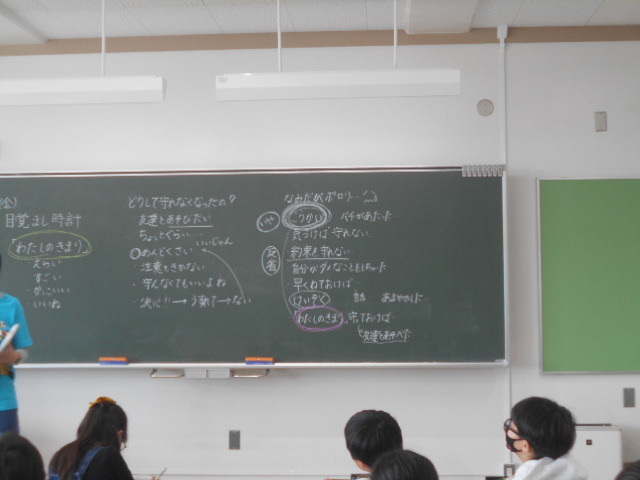 目覚まし時計
「わたしのきまり」
・えらい
・すごい
・かっこいい
・いいね
どうして守れなくなったの？
・友達とあそびたい
・ちょっとぐらい
いいじゃん
・めんどくさい
・注意をきかない
・守んなくてもいいよね
・決心!! →う動て→ない
なみだがポロリ…
バチがあたった
気づけば 守れない
約束も守れない
自分がダメなことをしちゃった
早くねておけば
「わたしのきまり」守っておけば
友達とあそべた